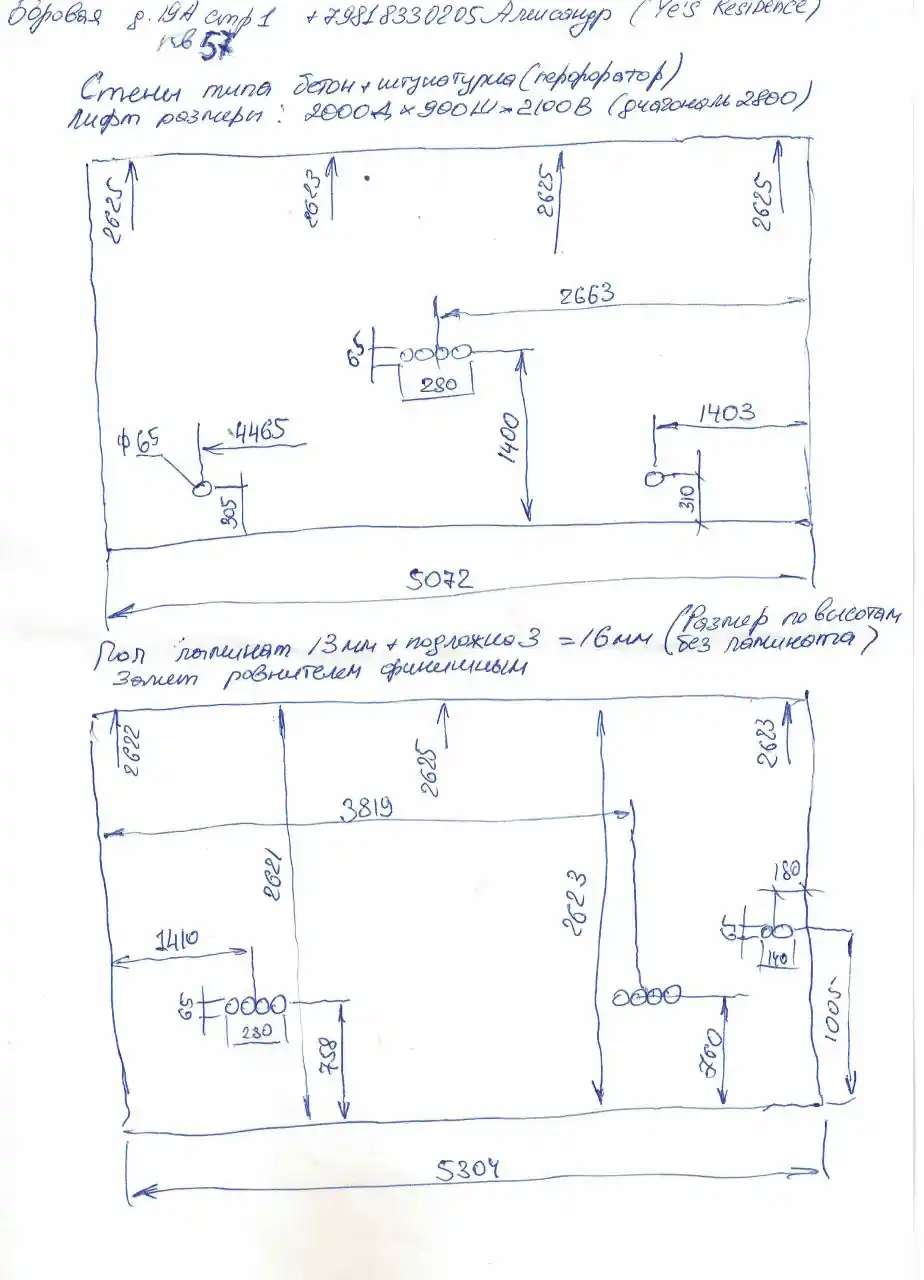 Боровая д. 19А стр 1 +79818330205 Александр (Ye's Residence)
кв 57
Стены типа бетон + штукатурка (перфоратор)
Лифт размеры: 2000Д × 900Ш × 2100В (диагональ 2800)
2625
2623
2625
2625
2663
65
280
1400
1403
ф 65
4465
305
310
5072
Пол ламинат 13 мм + подложка 3 = 16 мм (Размер по высотам
без ламината)
ровнителем финишным
2622
2625
2623
3819
2621
2623
180
65
140
1005
1410
65
280
758
760
5304